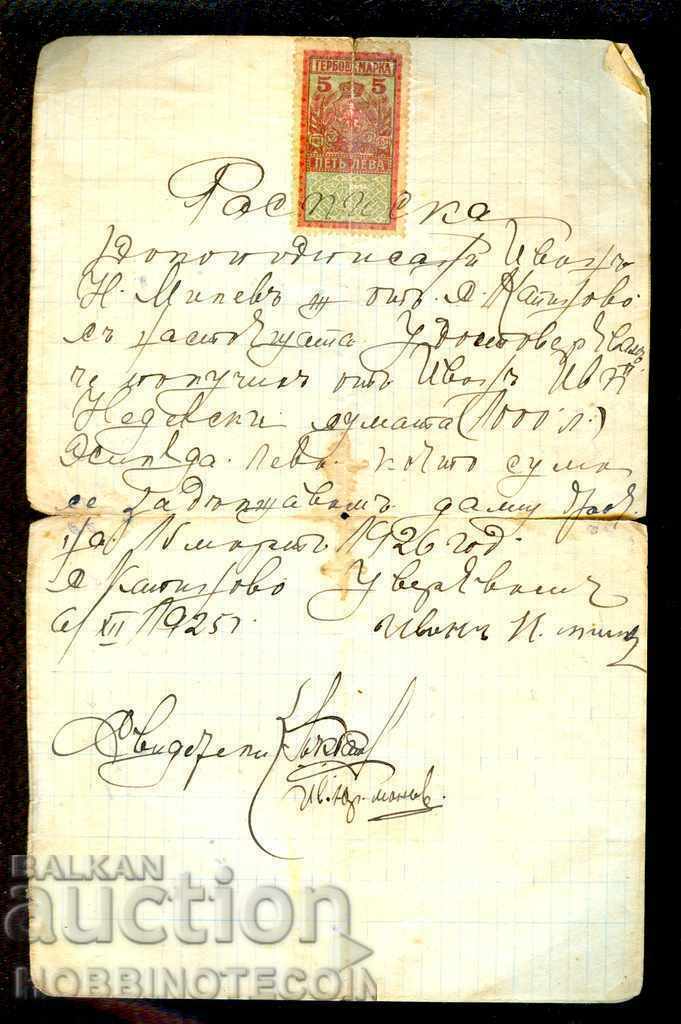 ГЕРБОВА МАРКА
5 5
ПЕТЬ ЛЕВА
Расписка
Долоподписаний Иванъ
Н. Милевъ отъ с.
съ настоящата удостоверявамъ
че получихъ отъ Иванъ Ив. Н.
Недевски сумата (1000 л.)
Хиляда лева която сума
се задължавамъ даму
на 15 мартъ 1926 год.
с. Уверявамъ
6/XII 1925 г. Иванъ Н.
Свидетели
Ив.
BALKAN
auction
HOBBINOTECOIN